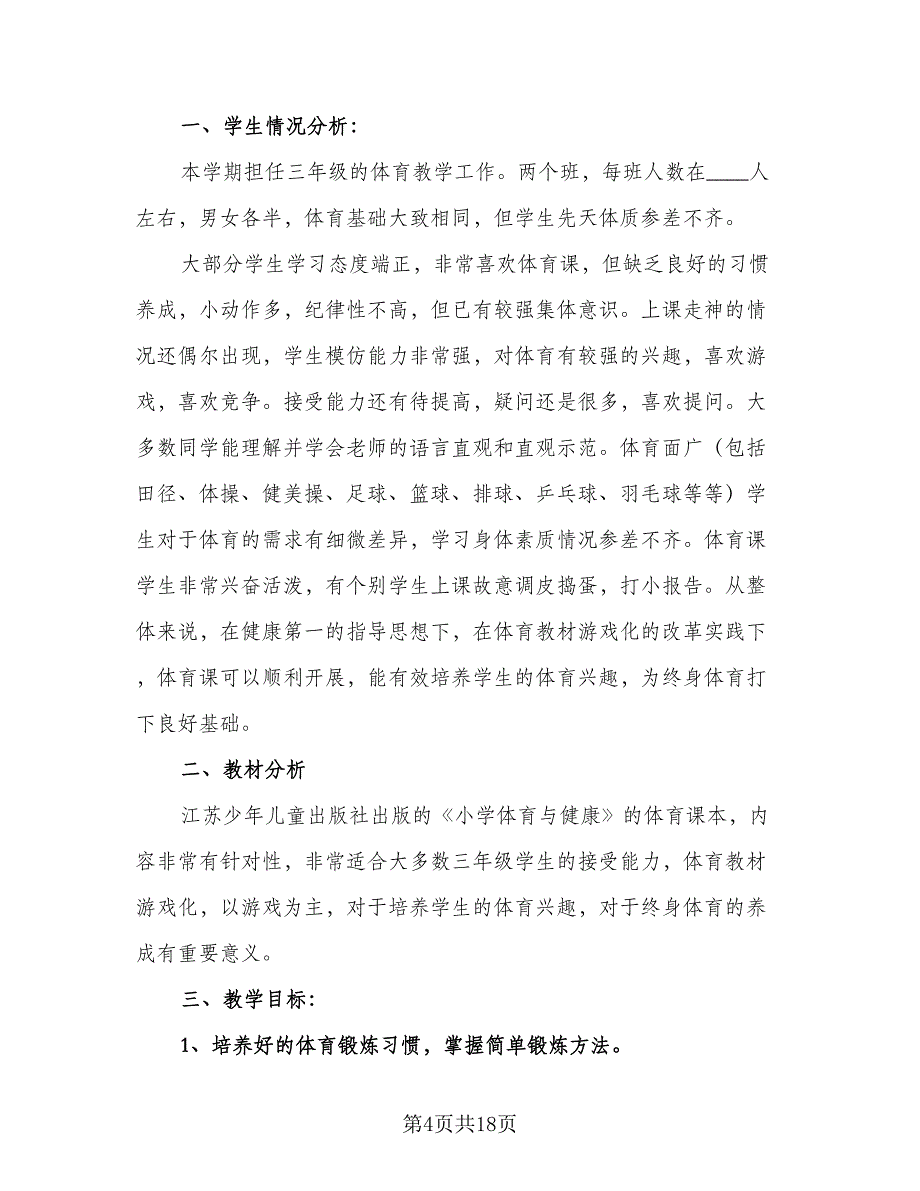 一、学生情况分析：
本学期担任三年级的体育教学工作。两个班，每班人数在____人
左右，男女各半，体育基础大致相同，但学生先天体质参差不齐。
大部分学生学习态度端正，非常喜欢体育课，但缺乏良好的习惯
养成，小动作多，纪律性不高，但已有较强集体意识。上课走神的情
况还偶尔出现，学生模仿能力非常强，对体育有较强的兴趣，喜欢游
戏，喜欢竞争。接受能力还有待提高，疑问还是很多，喜欢提问。大
多数同学能理解并学会老师的语言直观和直观示范。体育面广（包括
田径、体操、健美操、足球、篮球、排球、乒乓球、羽毛球等等）学
生对于体育的需求有细微差异，学习身体素质情况参差不齐。体育课
学生非常兴奋活泼，有个别学生上课故意调皮捣蛋，打小报告。从整
体来说，在健康第一的指导思想下，在体育教材游戏化的改革实践下
，体育课可以顺利开展，能有效培养学生的体育兴趣，为终身体育打
下良好基础。
二、教材分析
江苏少年儿童出版社出版的《小学体育与健康》的体育课本，内
容非常有针对性，非常适合大多数三年级学生的接受能力，体育教材
游戏化，以游戏为主，对于培养学生的体育兴趣，对于终身体育的养
成有重要意义。
三、教学目标：
1、培养好的体育锻炼习惯，掌握简单锻炼方法。
第4页共18页